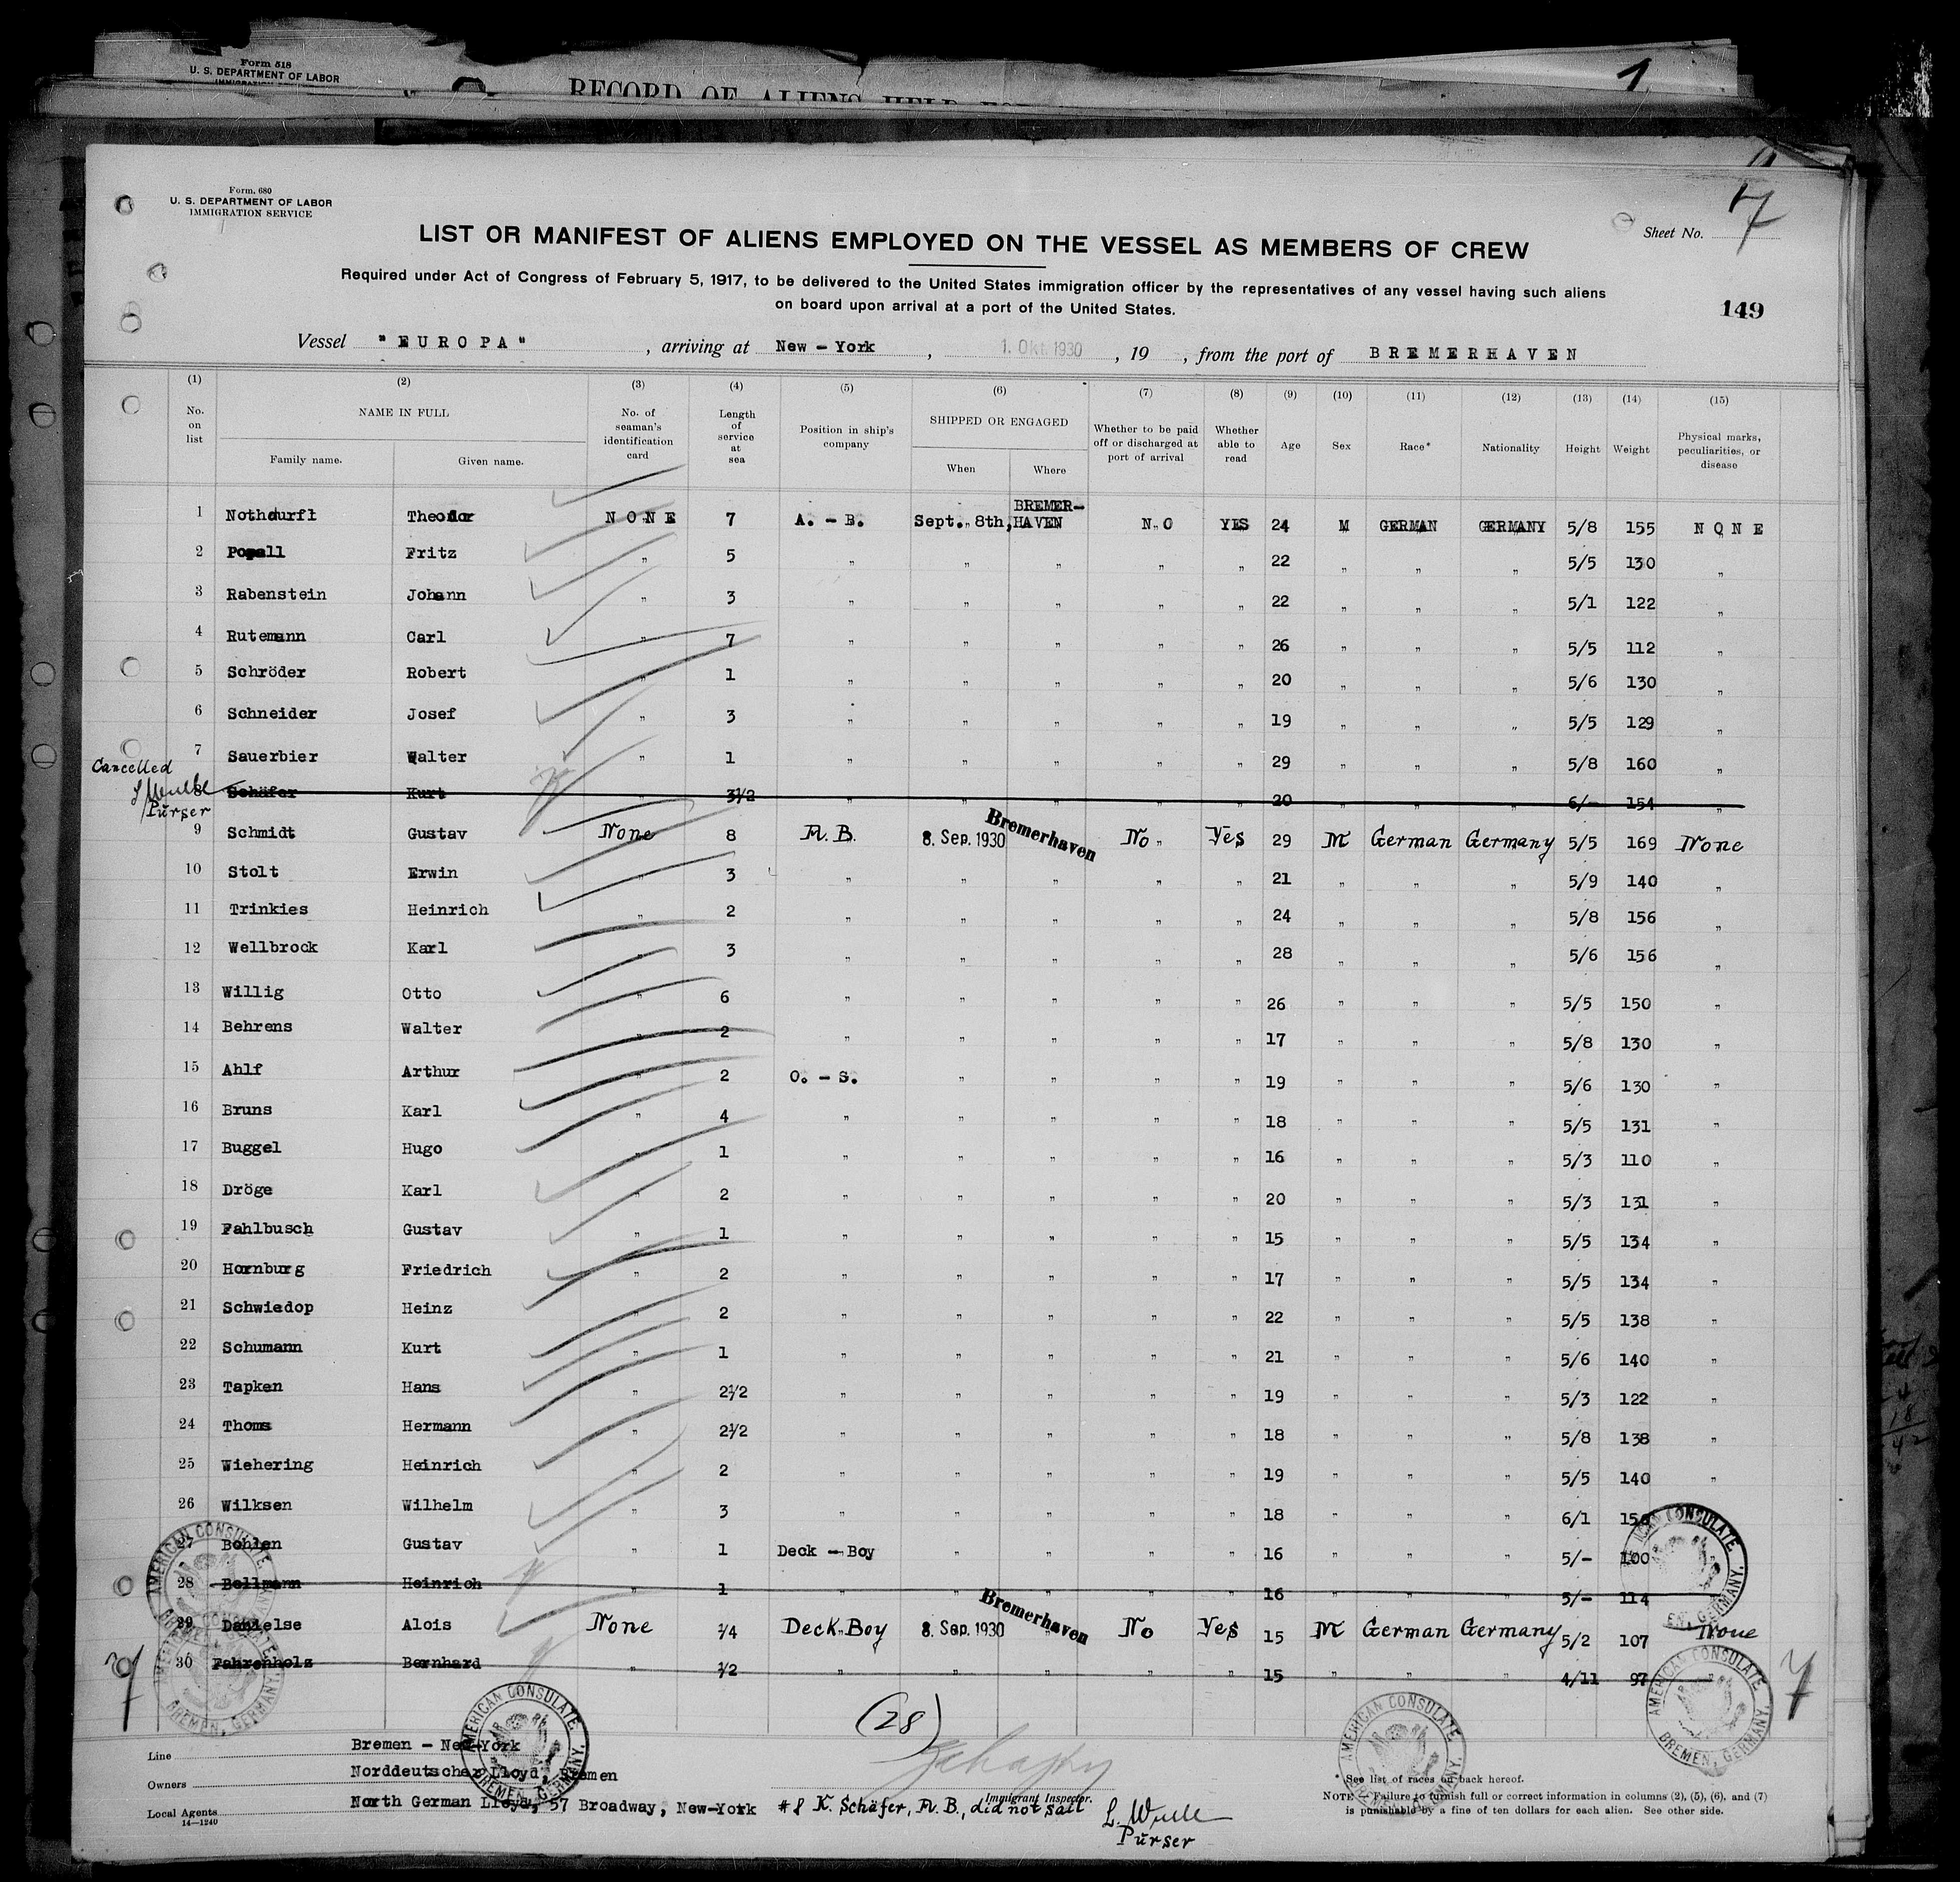 Form 518
U. S. DEPARTMENT OF LABOR
RECORD OF ALIENS HELD
1
Form. 680
U. S. DEPARTMENT OF LABOR
IMMIGRATION SERVICE
Sheet No. 7
LIST OR MANIFEST OF ALIENS EMPLOYED ON THE VESSEL AS MEMBERS OF CREW
Required under Act of Congress of February 5, 1917, to be delivered to the United States immigration officer by the representatives of any vessel having such aliens
on board upon arrival at a port of the United States.
149
Vessel "EUROPA", arriving at New-York, 1. Okt. 1930, 19 , from the port of BREMERHAVEN
(1) (2) (3) (4) (5) (6) (7) (8) (9) (10) (11) (12) (13) (14) (15)
No. on list NAME IN FULL Family name. Given name. No. of seaman's identification card Length of service at sea Position in ship's company SHIPPED OR ENGAGED When Where Whether to be paid off or discharged at port of arrival Whether able to read Age Sex Race* Nationality Height Weight Physical marks, peculiarities, or disease
1 Nothdurft Theodor NONE 7 A. - B. Sept. 8th, BREMER-HAVEN NO YES 24 M GERMAN GERMANY 5/8 155 NONE
2 Popall Fritz " 5 " " " " " 22 " " " 5/5 130 "
3 Rabenstein Johann " 3 " " " " " 22 " " " 5/1 122 "
4 Rutemann Carl " 7 " " " " " 26 " " " 5/5 112 "
5 Schröder Robert " 1 " " " " " 20 " " " 5/6 130 "
6 Schneider Josef " 3 " " " " " 19 " " " 5/5 129 "
7 Sauerbier Walter " 1 " " " " " 29 " " " 5/8 160 "
Cancelled
Purser
8 Schäfer Kurt 3½ " " " " " 20 " " " 6/- 154 "
9 Schmidt Gustav None 8 A.B. 8. Sep. 1930 Bremerhaven No " Yes 29 M German Germany 5/5 169 None
10 Stolt Erwin " 3 " " " " " 21 " " " 5/9 140 "
11 Trinkies Heinrich " 2 " " " " " 24 " " " 5/8 156 "
12 Wellbrock Karl " 3 " " " " " 28 " " " 5/6 156 "
13 Willig Otto " 6 " " " " " 26 " " " 5/5 150 "
14 Behrens Walter " 2 " " " " " 17 " " " 5/8 130 "
15 Ahlf Arthur " 2 O. - S. " " " " 19 " " " 5/6 130 "
16 Bruns Karl " 4 " " " " " 18 " " " 5/5 131 "
17 Buggel Hugo " 1 " " " " " 16 " " " 5/3 110 "
18 Dröge Karl " 2 " " " " " 20 " " " 5/3 131 "
19 Fahlbusch Gustav " 1 " " " " " 15 " " " 5/5 134 "
20 Hornburg Friedrich " 2 " " " " " 17 " " " 5/5 134 "
21 Schwiedop Heinz " 2 " " " " " 22 " " " 5/5 138 "
22 Schumann Kurt " 1 " " " " " 21 " " " 5/6 140 "
23 Tapken Hans " 2½ " " " " " 19 " " " 5/3 122 "
24 Thoms Hermann " 2½ " " " " " 18 " " " 5/8 138 "
25 Wiehering Heinrich " 2 " " " " " 19 " " " 5/5 140 "
26 Wilksen Wilhelm " 3 " " " " " 18 " " " 6/1
27 Bohlen Gustav " 1 Deck - Boy " " " " 16 " " " 5/- 100
28 Bellmann Heinrich " 1 " " " " " 16 " " " 5/- 114
29 Danielse Alois None ¼ Deck-Boy 8. Sep. 1930 Bremerhaven No Yes 15 M German Germany 5/2 107 None
30 Fahrenholz Bernhard " ½ " " " " " 15 " " " 4/11 97 "
7
7
(28)
AMERICAN CONSULATE BREMEN, GERMANY.
AMERICAN CONSULATE BREMEN, GERMANY.
AMERICAN CONSULATE BREMEN, GERMANY.
AMERICAN CONSULATE BREMEN, GERMANY.
Line Bremen - New-York
Owners Norddeutscher Lloyd, Bremen
Local Agents North German Lloyd, 57 Broadway, New-York
14-1240
Immigrant Inspector.
#8 K. Schäfer, A.B., did not sail
Purser
* See list of races on back hereof.
NOTE.-Failure to furnish full or correct information in columns (2), (5), (6), and (7)
is punishable by a fine of ten dollars for each alien. See other side.